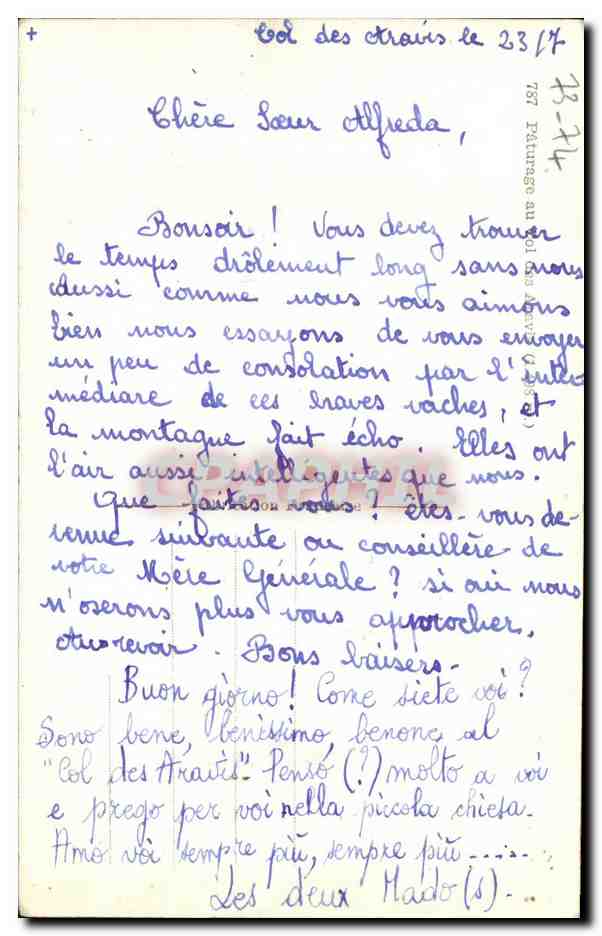 + Col des Aravis le 23/7
73-74
787 Pâturage au Col des Aravis
Chère Sœur Alfreda,
Bonsoir ! Vous devez trouver
le temps drôlement long sans nous
Aussi comme nous vous aimons
bien nous essayons de vous envoyer
un peu de consolation par l'inter
médiare de ces braves vaches, et
la montagne fait écho. Elles ont
l'air aussi intelligentes que nous.
Que faites-vous ? êtes-vous de-
venue suivante ou conseillère de
votre Mère Générale ? si oui nous
n'oserons plus vous approcher.
Au revoir. Bons baisers-
Buon giorno! Come siete voi ?
Sono bene, benissimo, benone al
"Col des Aravis". Penso (?) molto a voi
e prego per voi nella piccola chiesa.
Amo voi sempre più, sempre più .....
Les deux Mado(s)-